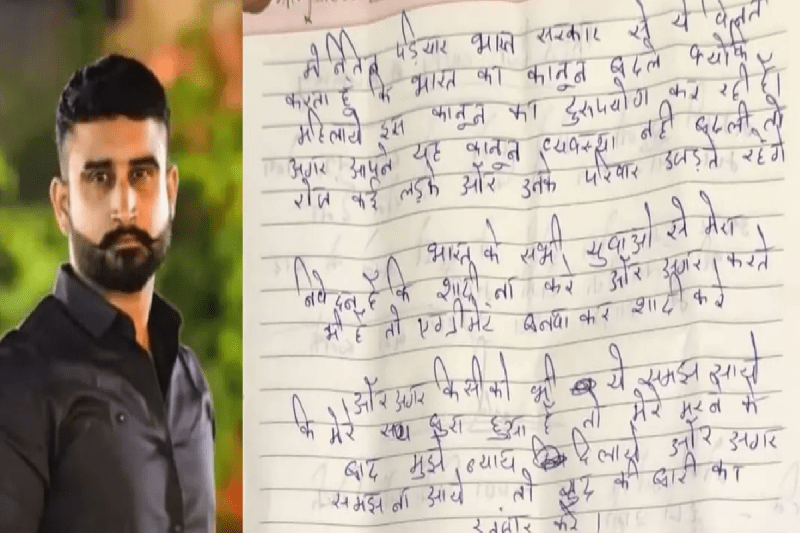 मै नितिन पडियार भारत सरकार से ये विनती
करता हूँ कि भारत का कानून बदले क्योंकि
महिलाये इस कानून का दुरूपयोग कर रही है।
अगर आपने यह कानून व्यवस्था नही बदली तो
रोज कई लड़के और उनके परिवार उजड़ते रहेंगे
भारत के सभी युवाओ से मेरा
निवेदन है कि शादी ना करे और अगर करते
भी है तो एग्रीमेंट बनवा कर शादी करे
और अगर किसी को भी ये समझ आये
कि मेरे साथ बुरा हुआ है तो मेरे मरने के
बाद मुझे न्याय दिलाये और अगर
समझ ना आये तो खुद की बारी का
इंतजार करे।